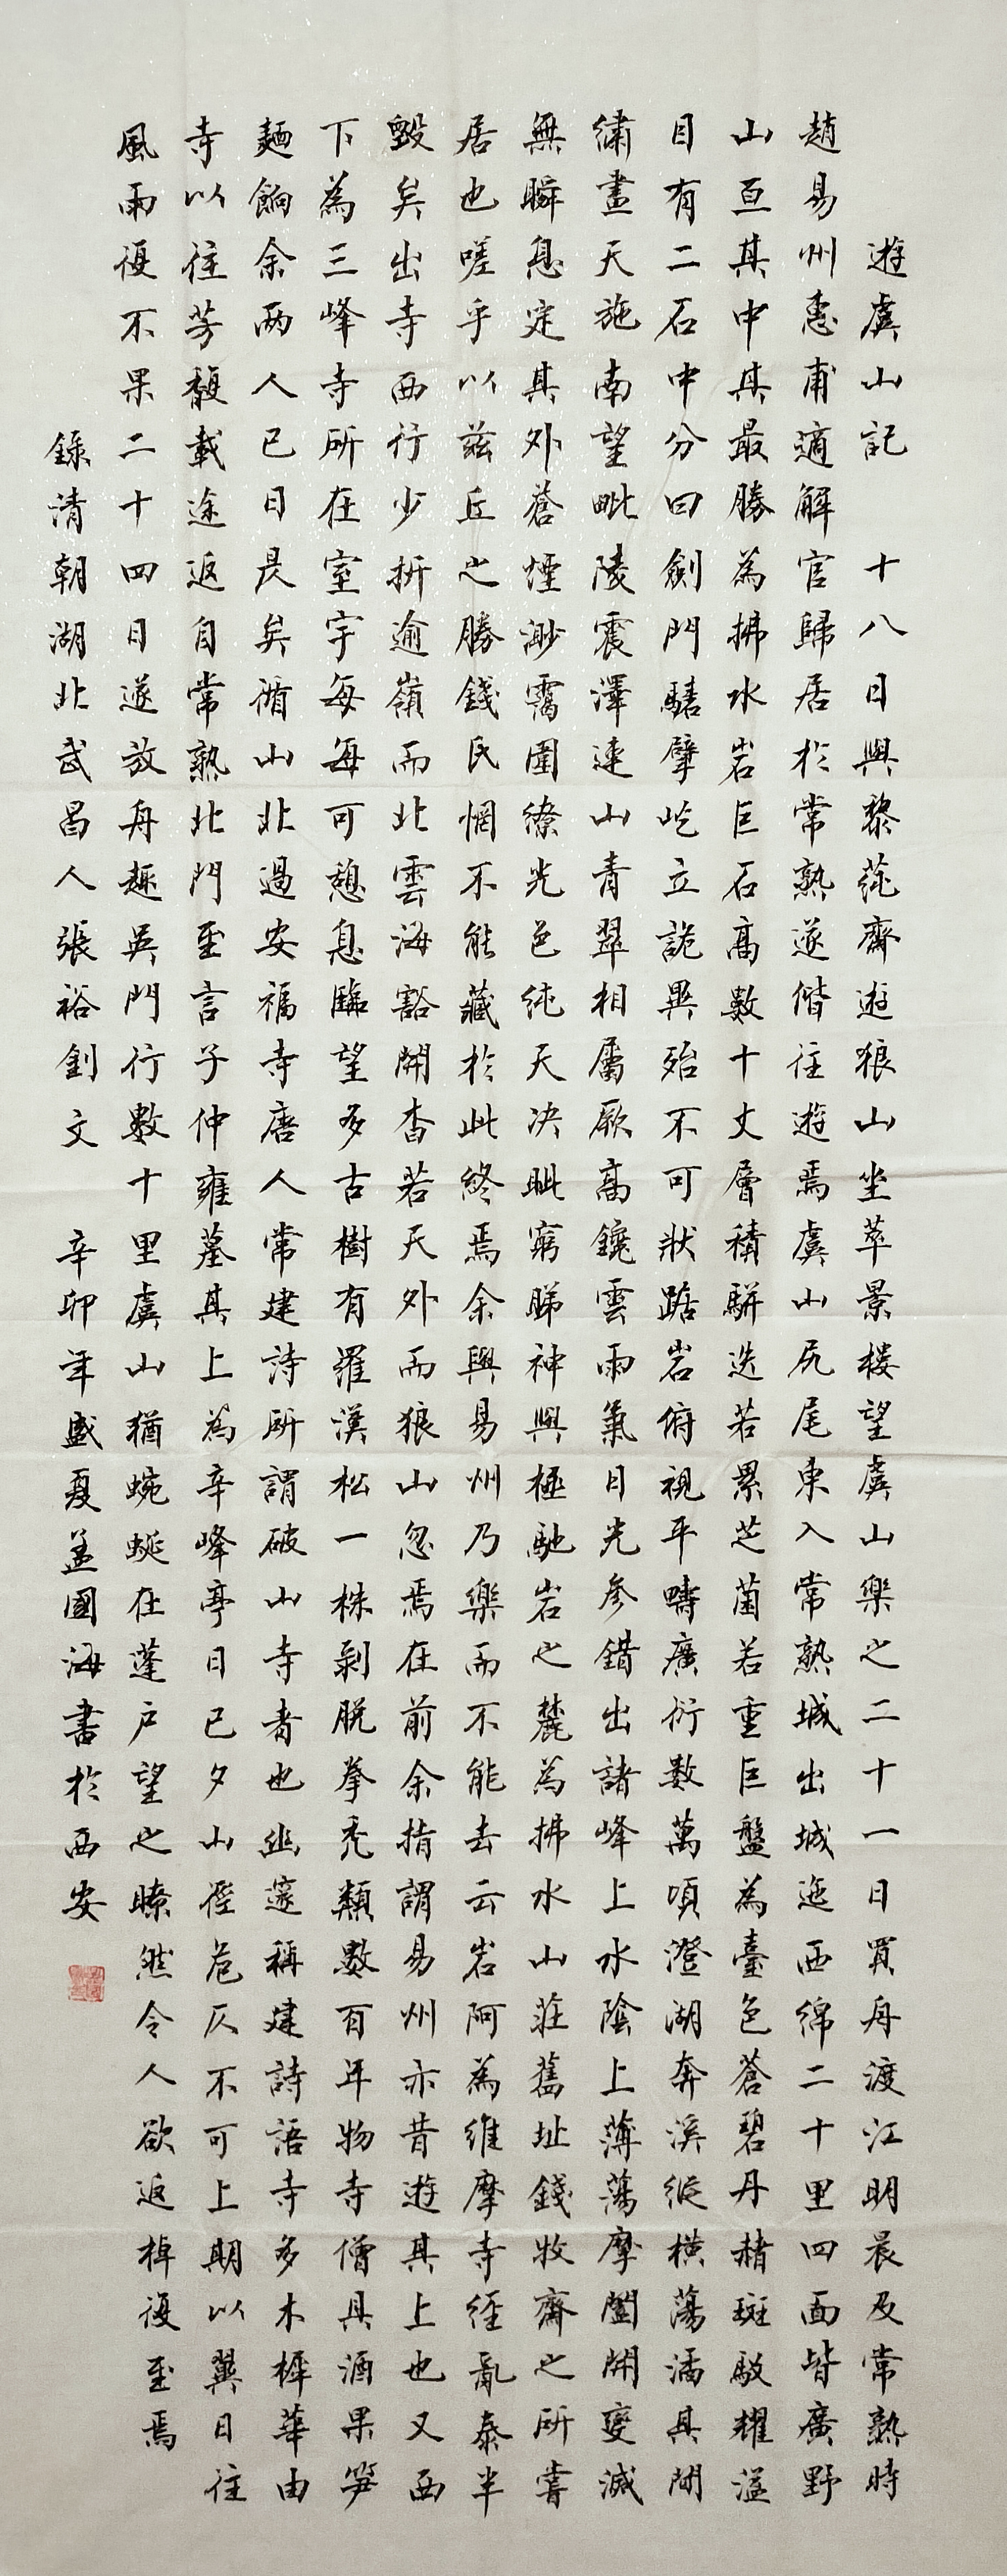 遊虞山記 十八日與黎蒓齋遊狼山坐萃景楼望虞山樂之二十一日買舟渡江明晨及常熟時
趙易州惠甫適解官歸居於常熟遂偕往遊焉虞山尻尾東入常熟城出城迤西綿二十里四面皆廣野
山亘其中其最勝為拂水岩巨石高數十丈層積駢迭若累芝菌若重巨盤為臺色蒼碧丹赭斑駁耀溢
目有二石中分曰劍門騞擘屹立詭異殆不可狀踞岩俯視平疇廣衍數萬頃澄湖奔溪縱横蕩潏其間
繡畫天施南望毗陵震澤連山青翠相屬厥高鑱雲雨氣日光參錯出諸峰上水陰上薄蕩摩闔開變滅
無瞬息定其外蒼煙渺靄圍繚光色純天决眦窮睇神與極馳岩之麓為拂水山莊舊址錢牧齋之所嘗
居也嗟乎以茲丘之勝錢氏惘不能藏於此終焉余與易州乃樂而不能去云岩阿為維摩寺經亂泰半
毀矣出寺西行少折逾嶺而北雲海豁開杳若天外而狼山忽焉在前余指謂易州亦昔遊其上也又西
下為三峰寺所在室宇每每可憩息臨望多古樹有羅漢松一株剝脱拳禿類數百年物寺僧具酒果笋
麵餉余兩人已日昃矣循山北過安福寺唐人常建詩所謂破山寺者也幽邃稱建詩語寺多木樨華由
寺以往芳馥載途返自常熟北門至言子仲雍墓其上為辛峰亭日已夕山徑危仄不可上期以翼日往
風雨復不果二十四日遂放舟趣吳門行數十里虞山猶蜿蜒在蓬户望之瞭然令人欲返棹復至焉
錄清朝湖北武昌人張裕釗文 辛卯年盛夏盖國海書於西安